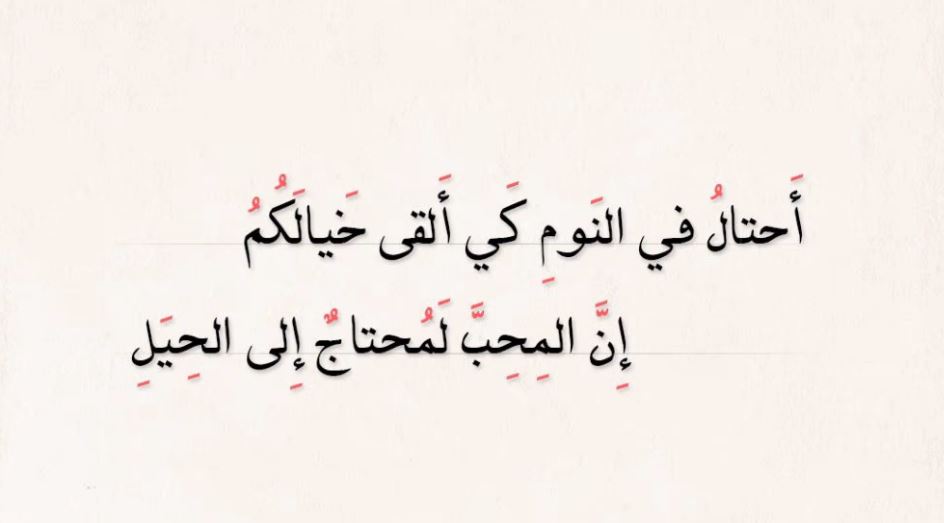 أَحتالُ في النَومِ كَي أَلقى خَيالَكُمُ
إِنَّ المِحِبَّ لَمُحتاجٌ إِلى الحِيَلِ